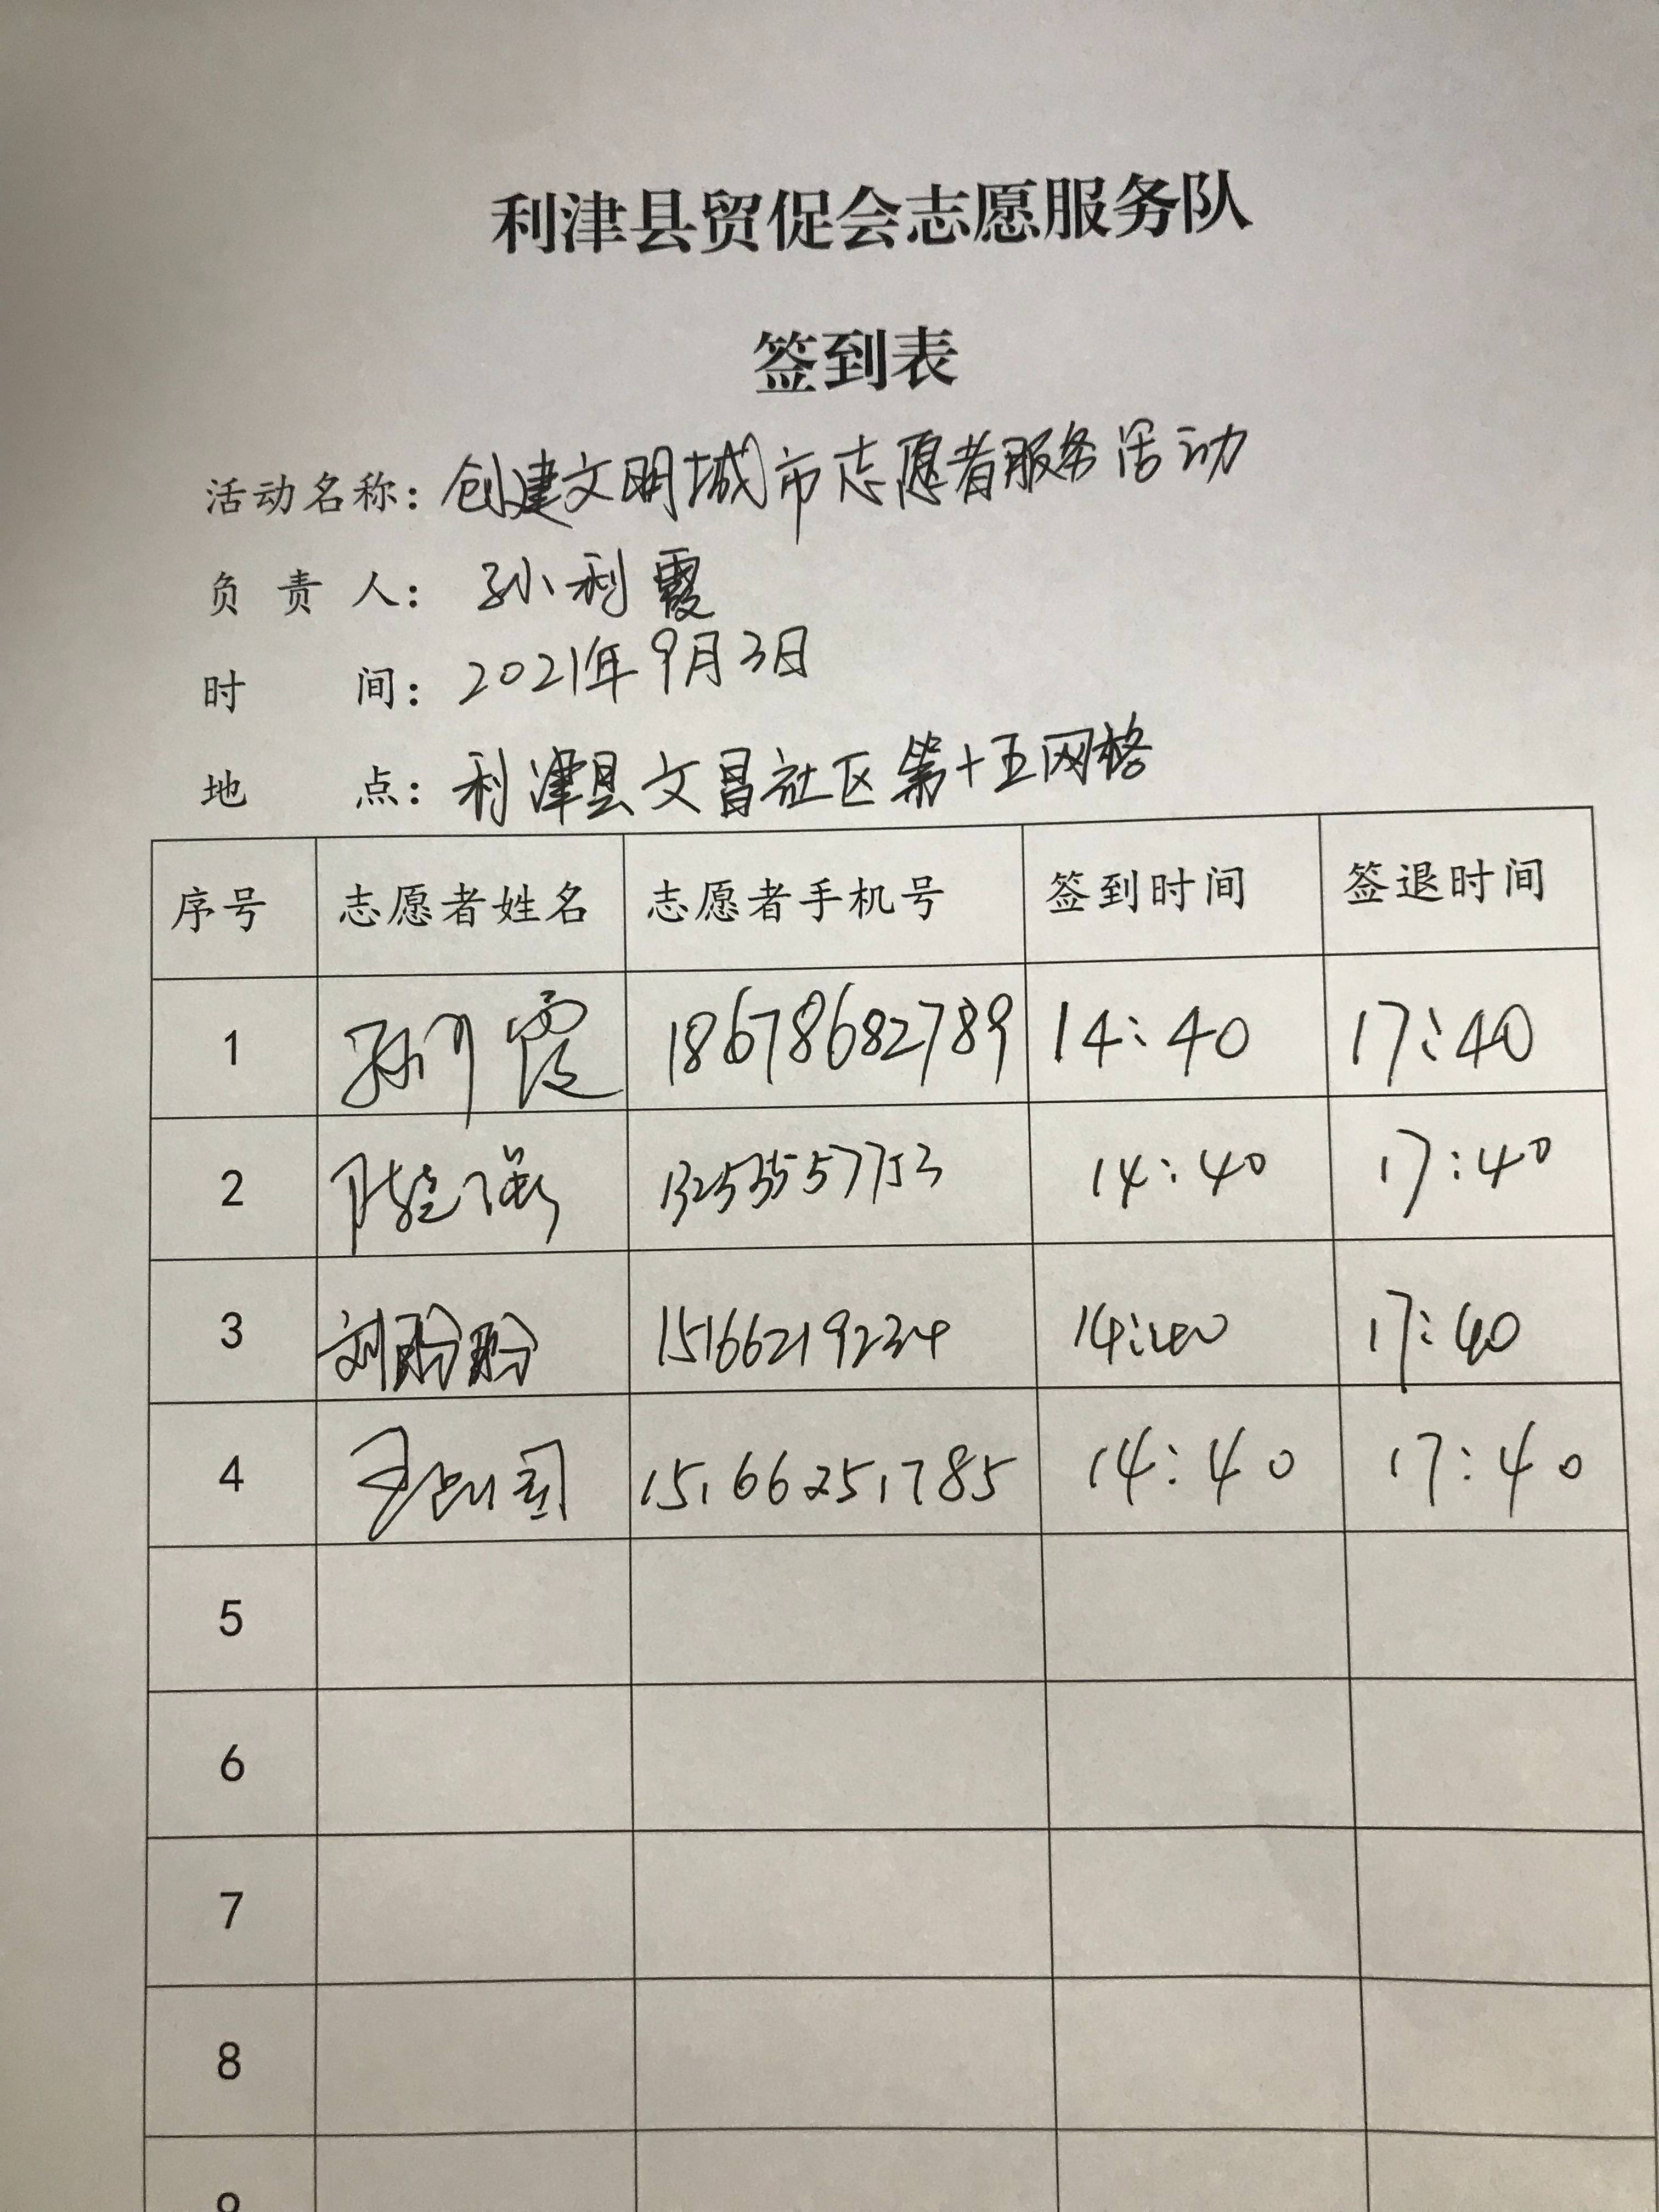 利津县贸促会志愿服务队
签到表
活动名称：创建文明城市志愿者服务活动
负责人：孙利霞
时间：2021年9月3日
地点：利津县文昌社区第十五网格
序号 志愿者姓名 志愿者手机号 签到时间 签退时间
1 孙利霞 18678682789 14:40 17:40
2 14:40 17:40
3 刘盼盼 15166219234 14:40 17:40
4 15166251785 14:40 17:40
5
6
7
8
9